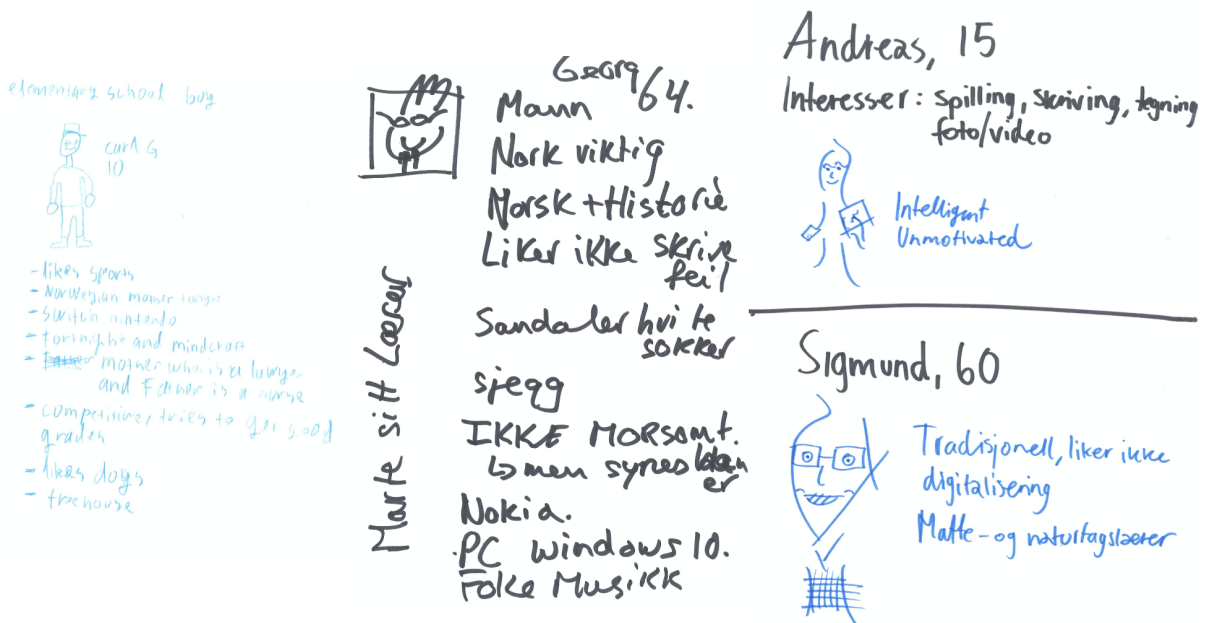 elementary school boy
carl G
10
- likes sports
- Norwegian momer tunge
- Switch nintendo
- fortnighe and mindcraft
- mother who is a lawyer
and Father is a nurse
- competitive, tries to get good
grades
- likes dogs
- treehouse
Marte sitt Lærer
Georg 64.
Mann
Nork viktig
Norsk + Historie
Liker ikke skrive
feil
Sandaler hvite
sokker
sjegg
IKKE MORSOMT.
↳ men synes
er
Nokia.
PC windows 10.
Folke Musikk
Andreas, 15
Interesser: spilling, skriving, tegning
foto/video
Intelligent
Unmotivated
Sigmund, 60
Tradisjonell, liker ikke
digitalisering
Matte- og naturfagslærer